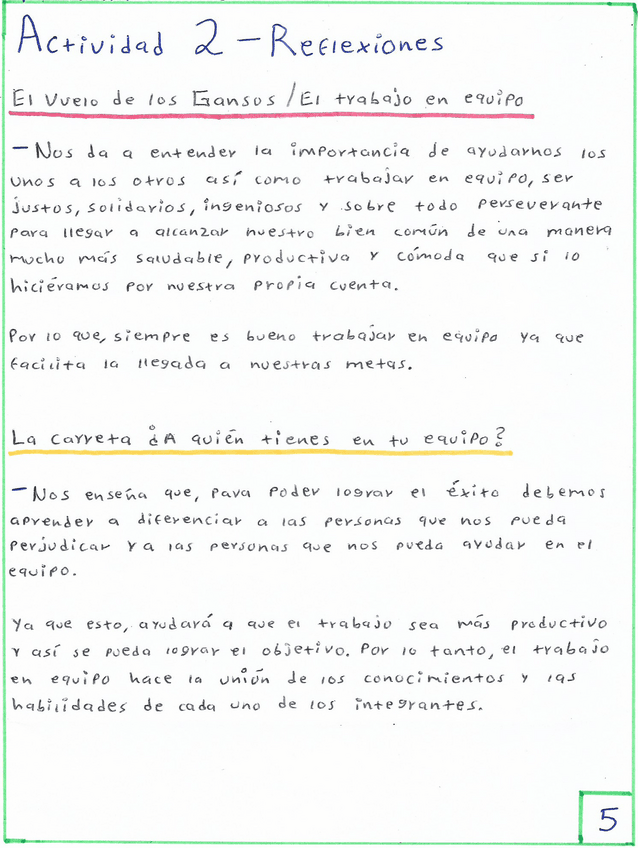 Actividad 2 - Reflexiones
El Vuelo de los Gansos / El trabajo en equipo
- Nos da a entender la importancia de ayudarnos los
unos a los otros así como trabajar en equipo, ser
justos, solidarios, ingeniosos y sobre todo perseverante
para llegar a alcanzar nuestro bien común de una manera
mucho más saludable, productiva y cómoda que si lo
hiciéramos por nuestra propia cuenta.
Por lo que, siempre es bueno trabajar en equipo ya que
facilita la llegada a nuestras metas.
La carreta ¿A quién tienes en tu equipo?
- Nos enseña que, para poder lograr el éxito debemos
aprender a diferenciar a las personas que nos pueda
perjudicar y a las personas que nos pueda ayudar en el
equipo.
Ya que esto, ayudará a que el trabajo sea más productivo
y así se pueda lograr el objetivo. Por lo tanto, el trabajo
en equipo hace la unión de los conocimientos y las
habilidades de cada uno de los integrantes.
5